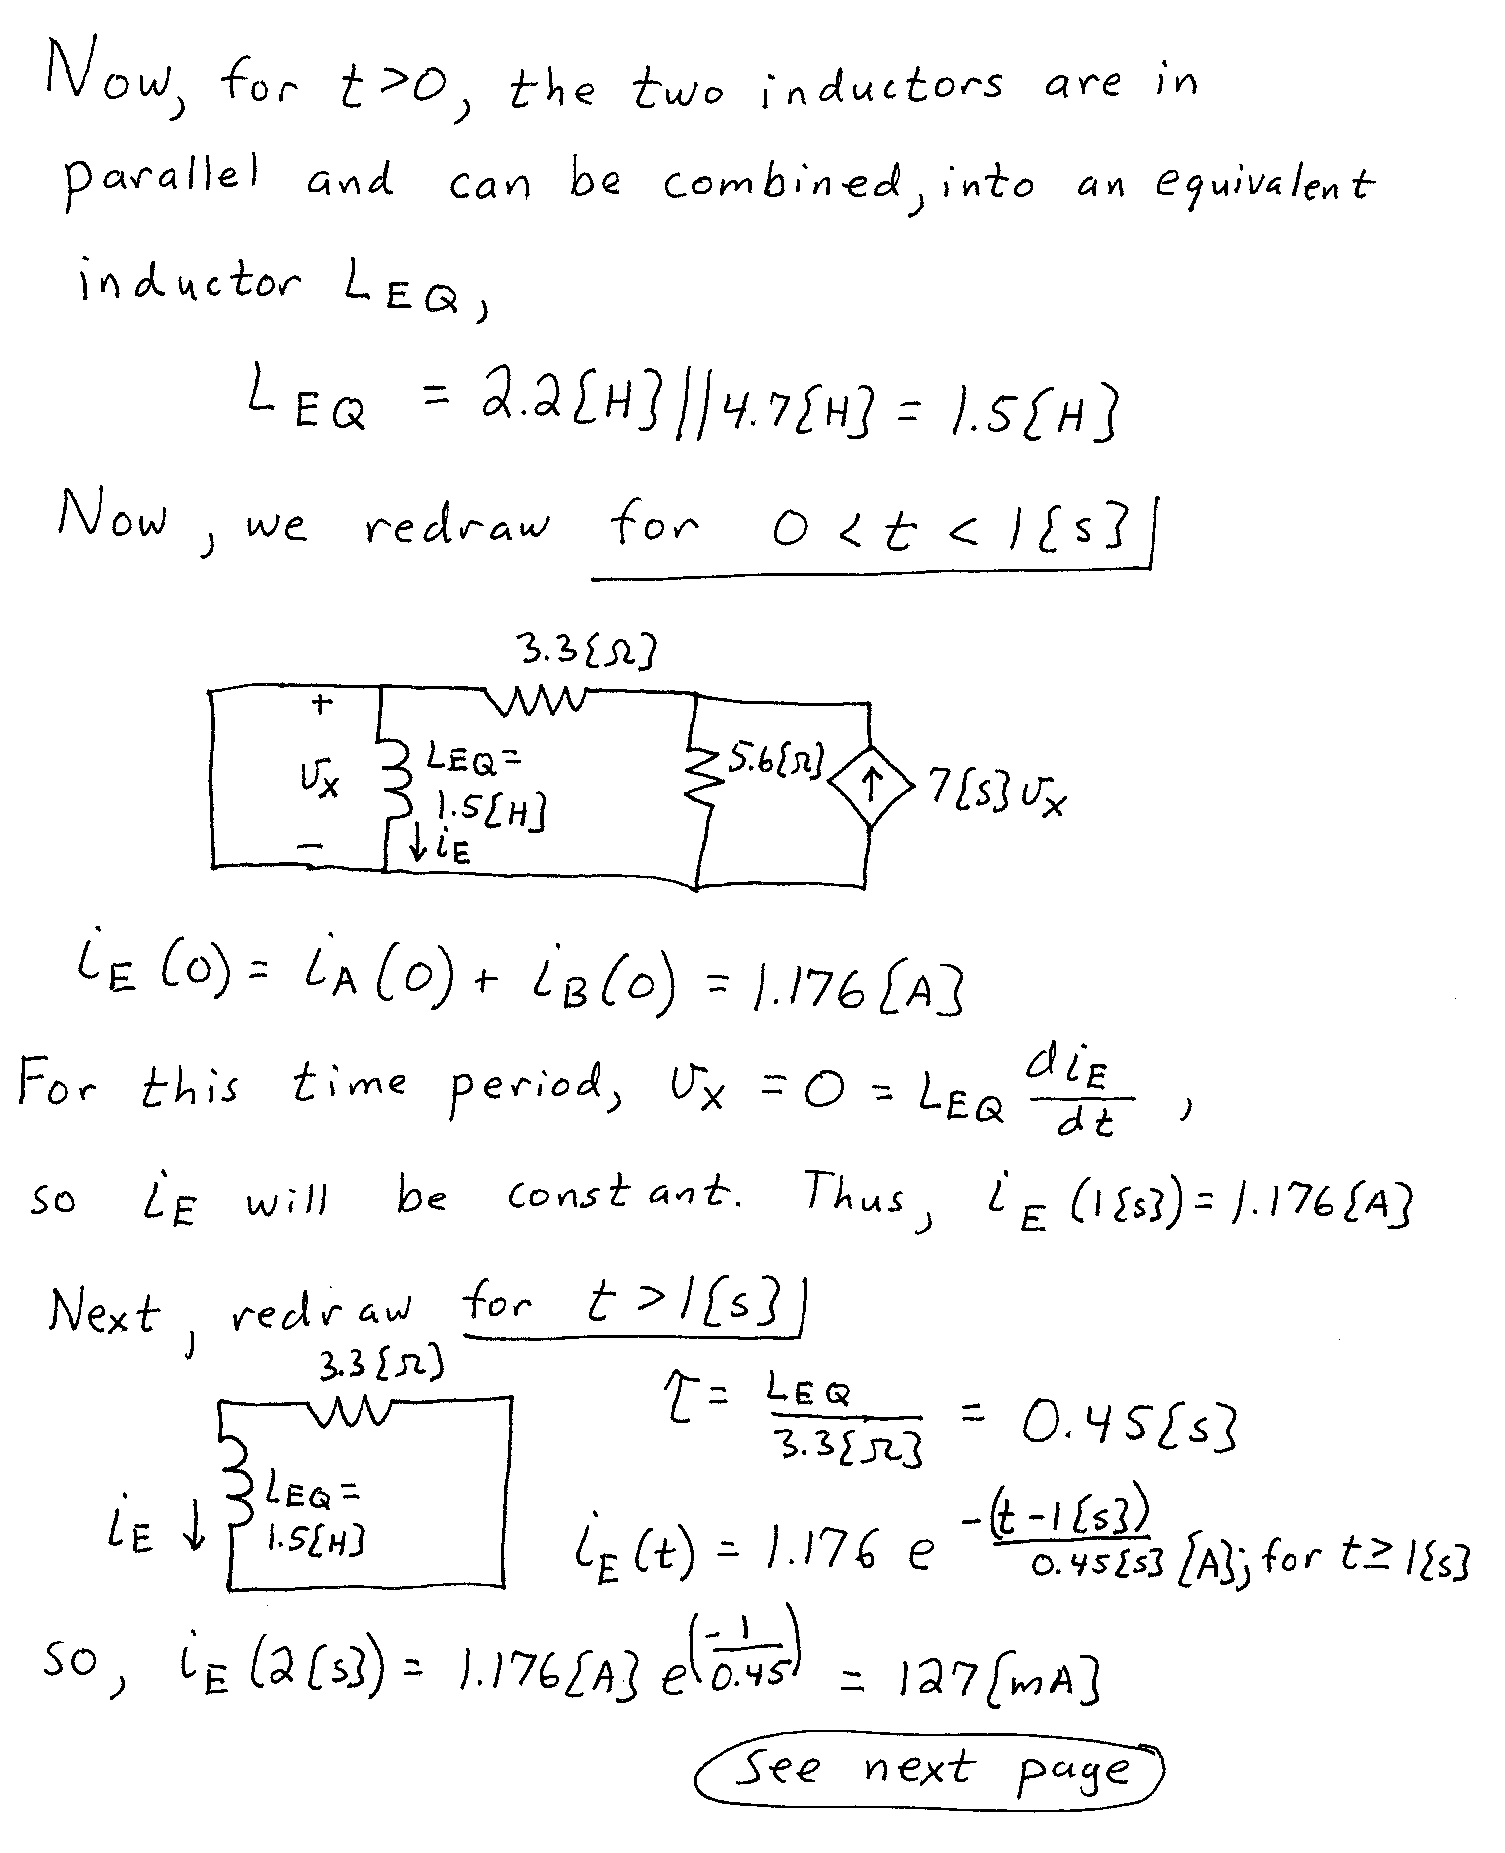 Now, for t>0, the two inductors are in
parallel and can be combined, into an equivalent
inductor LEQ,
LEQ = 2.2{H}||4.7{H} = 1.5{H}
Now, we redraw for 0 < t < 1{s}
3.3{Ω}
+
vx
−
LEQ =
1.5{H}
↓ iE
5.6{Ω}
↑
7{s}vx
iE(0) = iA(0) + iB(0) = 1.176{A}
For this time period, vx = 0 = LEQ diE/dt ,
so iE will be constant. Thus, iE(1{s}) = 1.176{A}
Next, redraw for t > 1{s}
3.3{Ω}
iE ↓
LEQ =
1.5{H}
τ = LEQ/3.3{Ω} = 0.45{s}
iE(t) = 1.176 e^(-(t-1{s})/0.45{s}) {A}; for t ≥ 1{s}
so, iE(2{s}) = 1.176{A} e^(-1/0.45) = 127{mA}
See next page